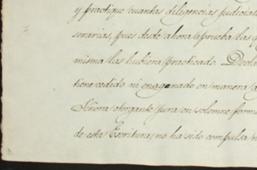 y practique cuantas diligencias judicial
sorarias, pues desde ahora aprueba las q
misma las hubiera practicado. Decla
tiene cedido ni engañado en manera
Señora otorgante jura en solemne forma
de esta Escritura, no ha sido compulsa n